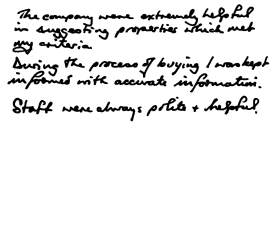 The company were extremely helpful
in suggesting properties which met
my criteria
During the process of buying I was kept
informed with accurate information.
Staff were always polite + helpful.